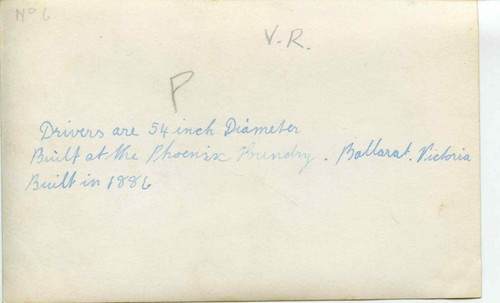 No 6
V. R.
P
Drivers are 54 inch Diameter
Built at the Phoenix Fundry. Ballarat. Victoria
Built in 1886